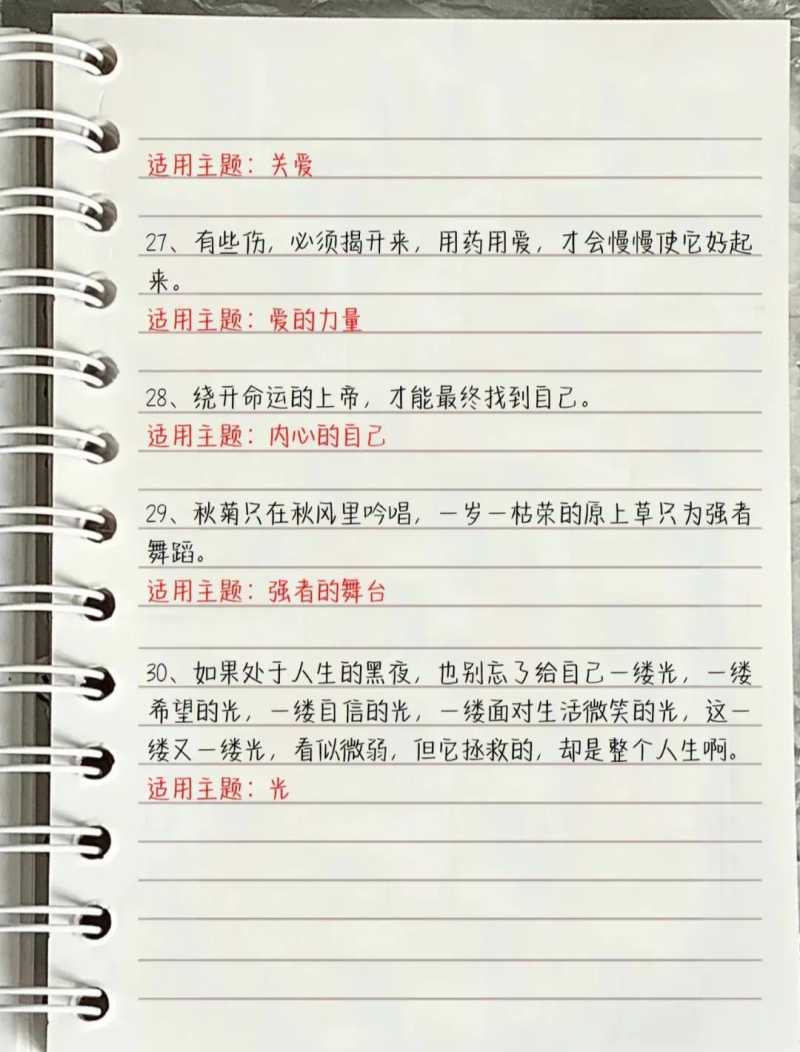 适用主题：关爱
27、有些伤，必须揭开来，用药用爱，才会慢慢使它好起
来。
适用主题：爱的力量
28、绕开命运的上帝，才能最终找到自己。
适用主题：内心的自己
29、秋菊只在秋风里吟唱，一岁一枯荣的原上草只为强者
舞蹈。
适用主题：强者的舞台
30、如果处于人生的黑夜，也别忘了给自己一缕光，一缕
希望的光，一缕自信的光，一缕面对生活微笑的光，这一
缕又一缕光，看似微弱，但它拯救的，却是整个人生啊。
适用主题：光